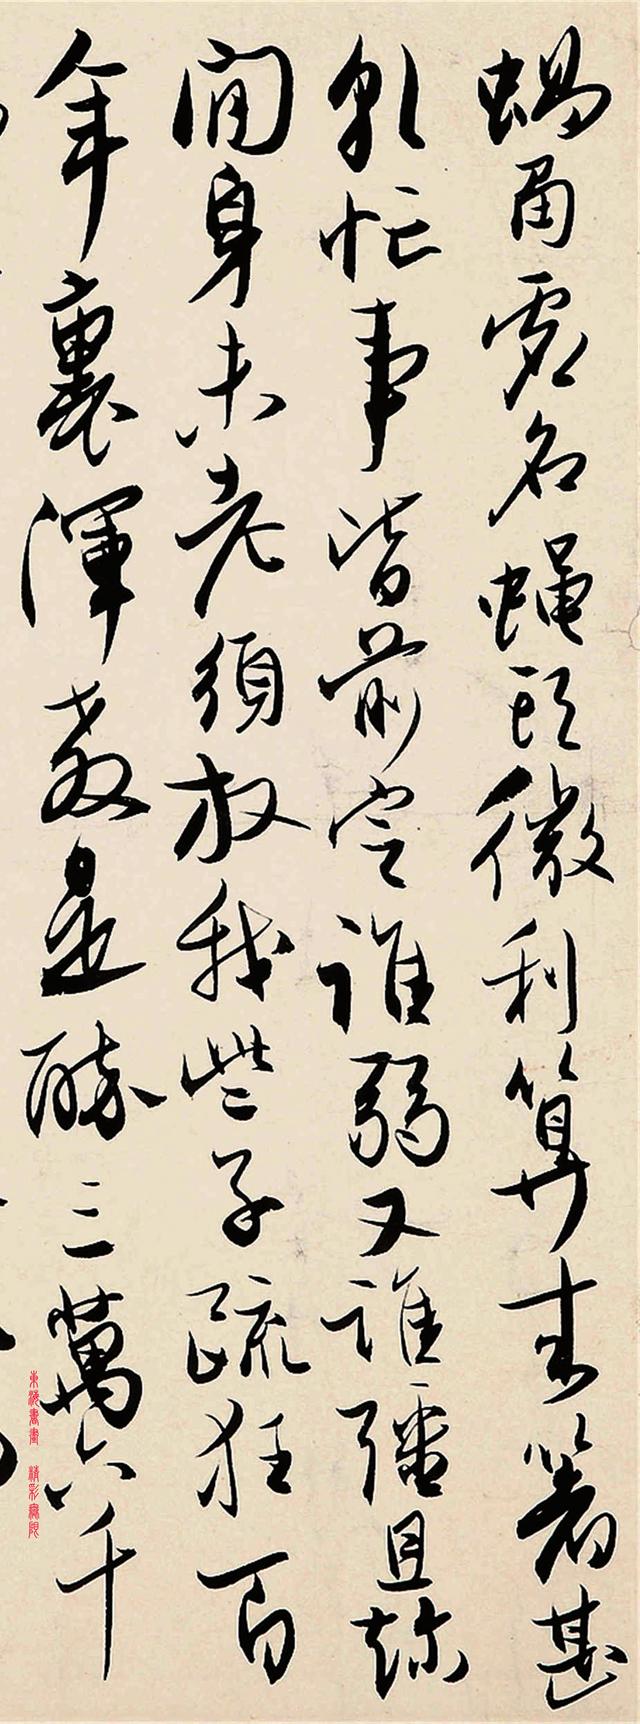 蝸角虛名蠅頭微利算来著甚
乹忙事皆前定誰弱又誰彊且趂
閒身未老須放我些子疏狂百
年裏渾教是醉三萬六千
東海書畫 精彩無限